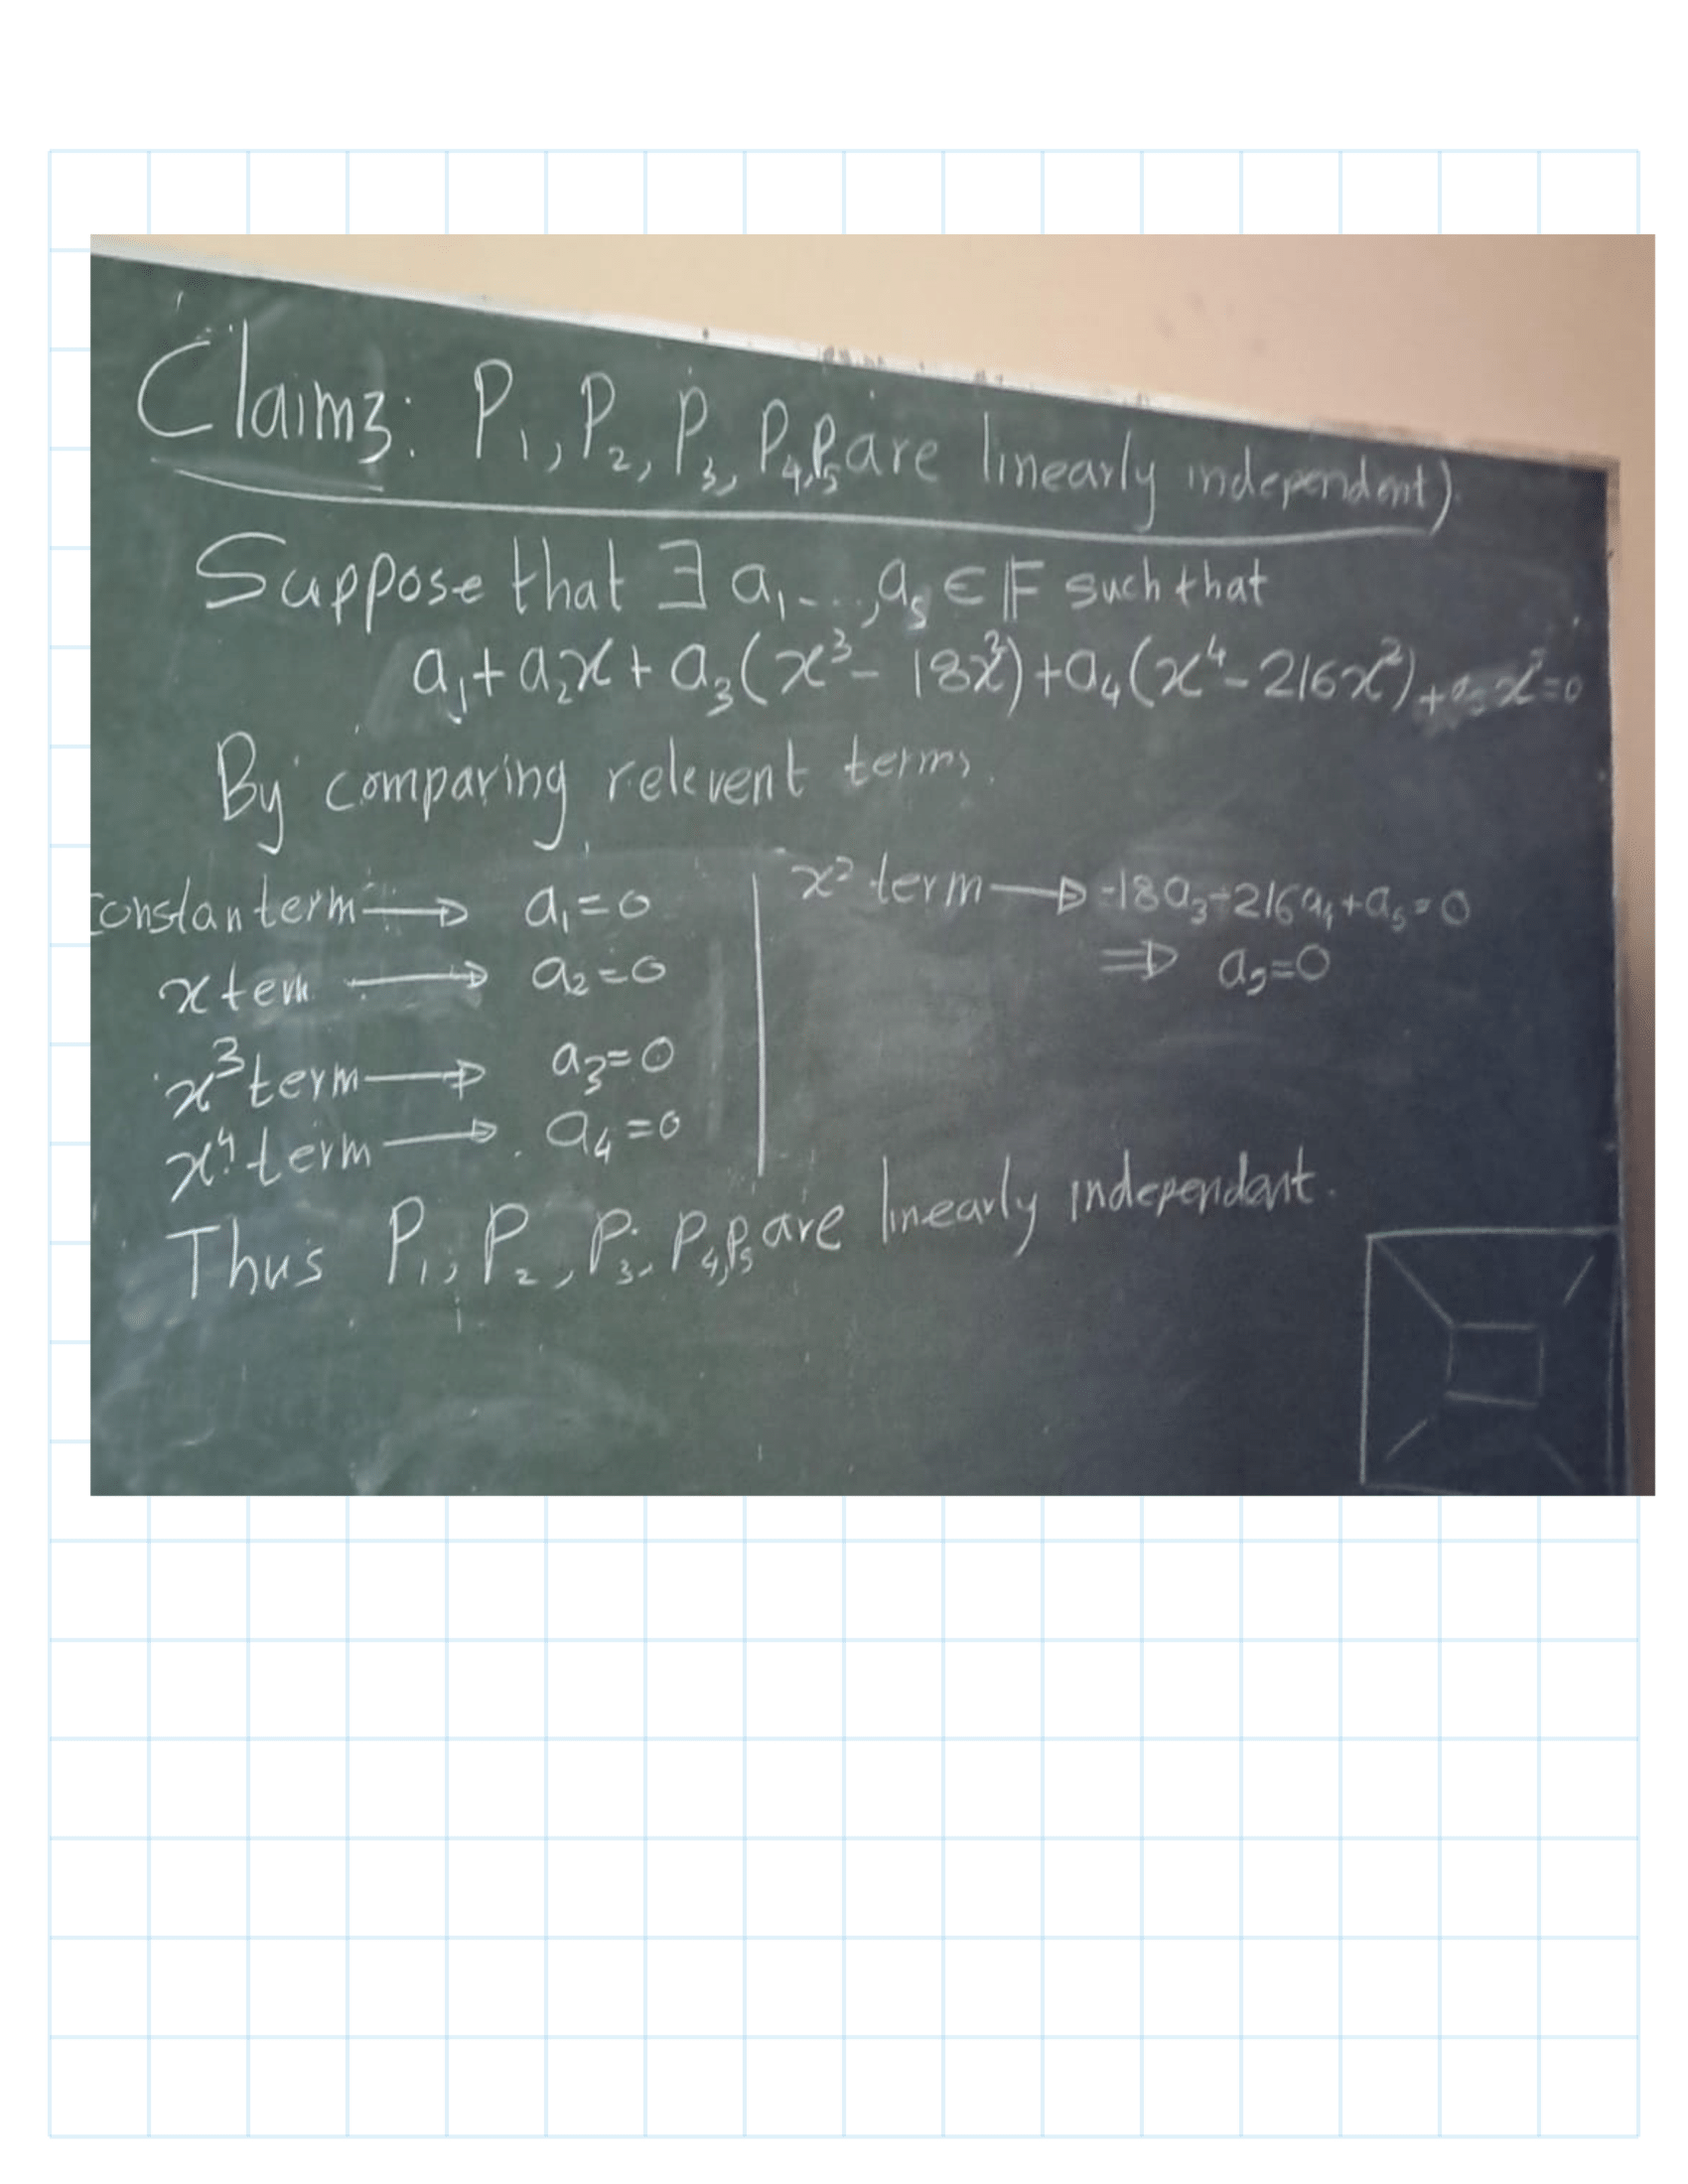 Claim3: P₁, P₂, P₃, P₄,P₅ are linearly independent).
Suppose that ∃ a₁,...,a₅ ∈ 𝔽 such that
a₁ + a₂x + a₃(x³ - 18x²) + a₄(x⁴ - 216x²) + a₅x² = 0
By comparing relevent terms.
constanterm → a₁=0
x term → a₂=0
x³ term → a₃=0
x⁴ term → a₄=0
x² term → -18a₃-216a₄+a₅=0
⇒ a₅=0
Thus P₁, P₂, P₃, P₄,P₅ are linearly independent.